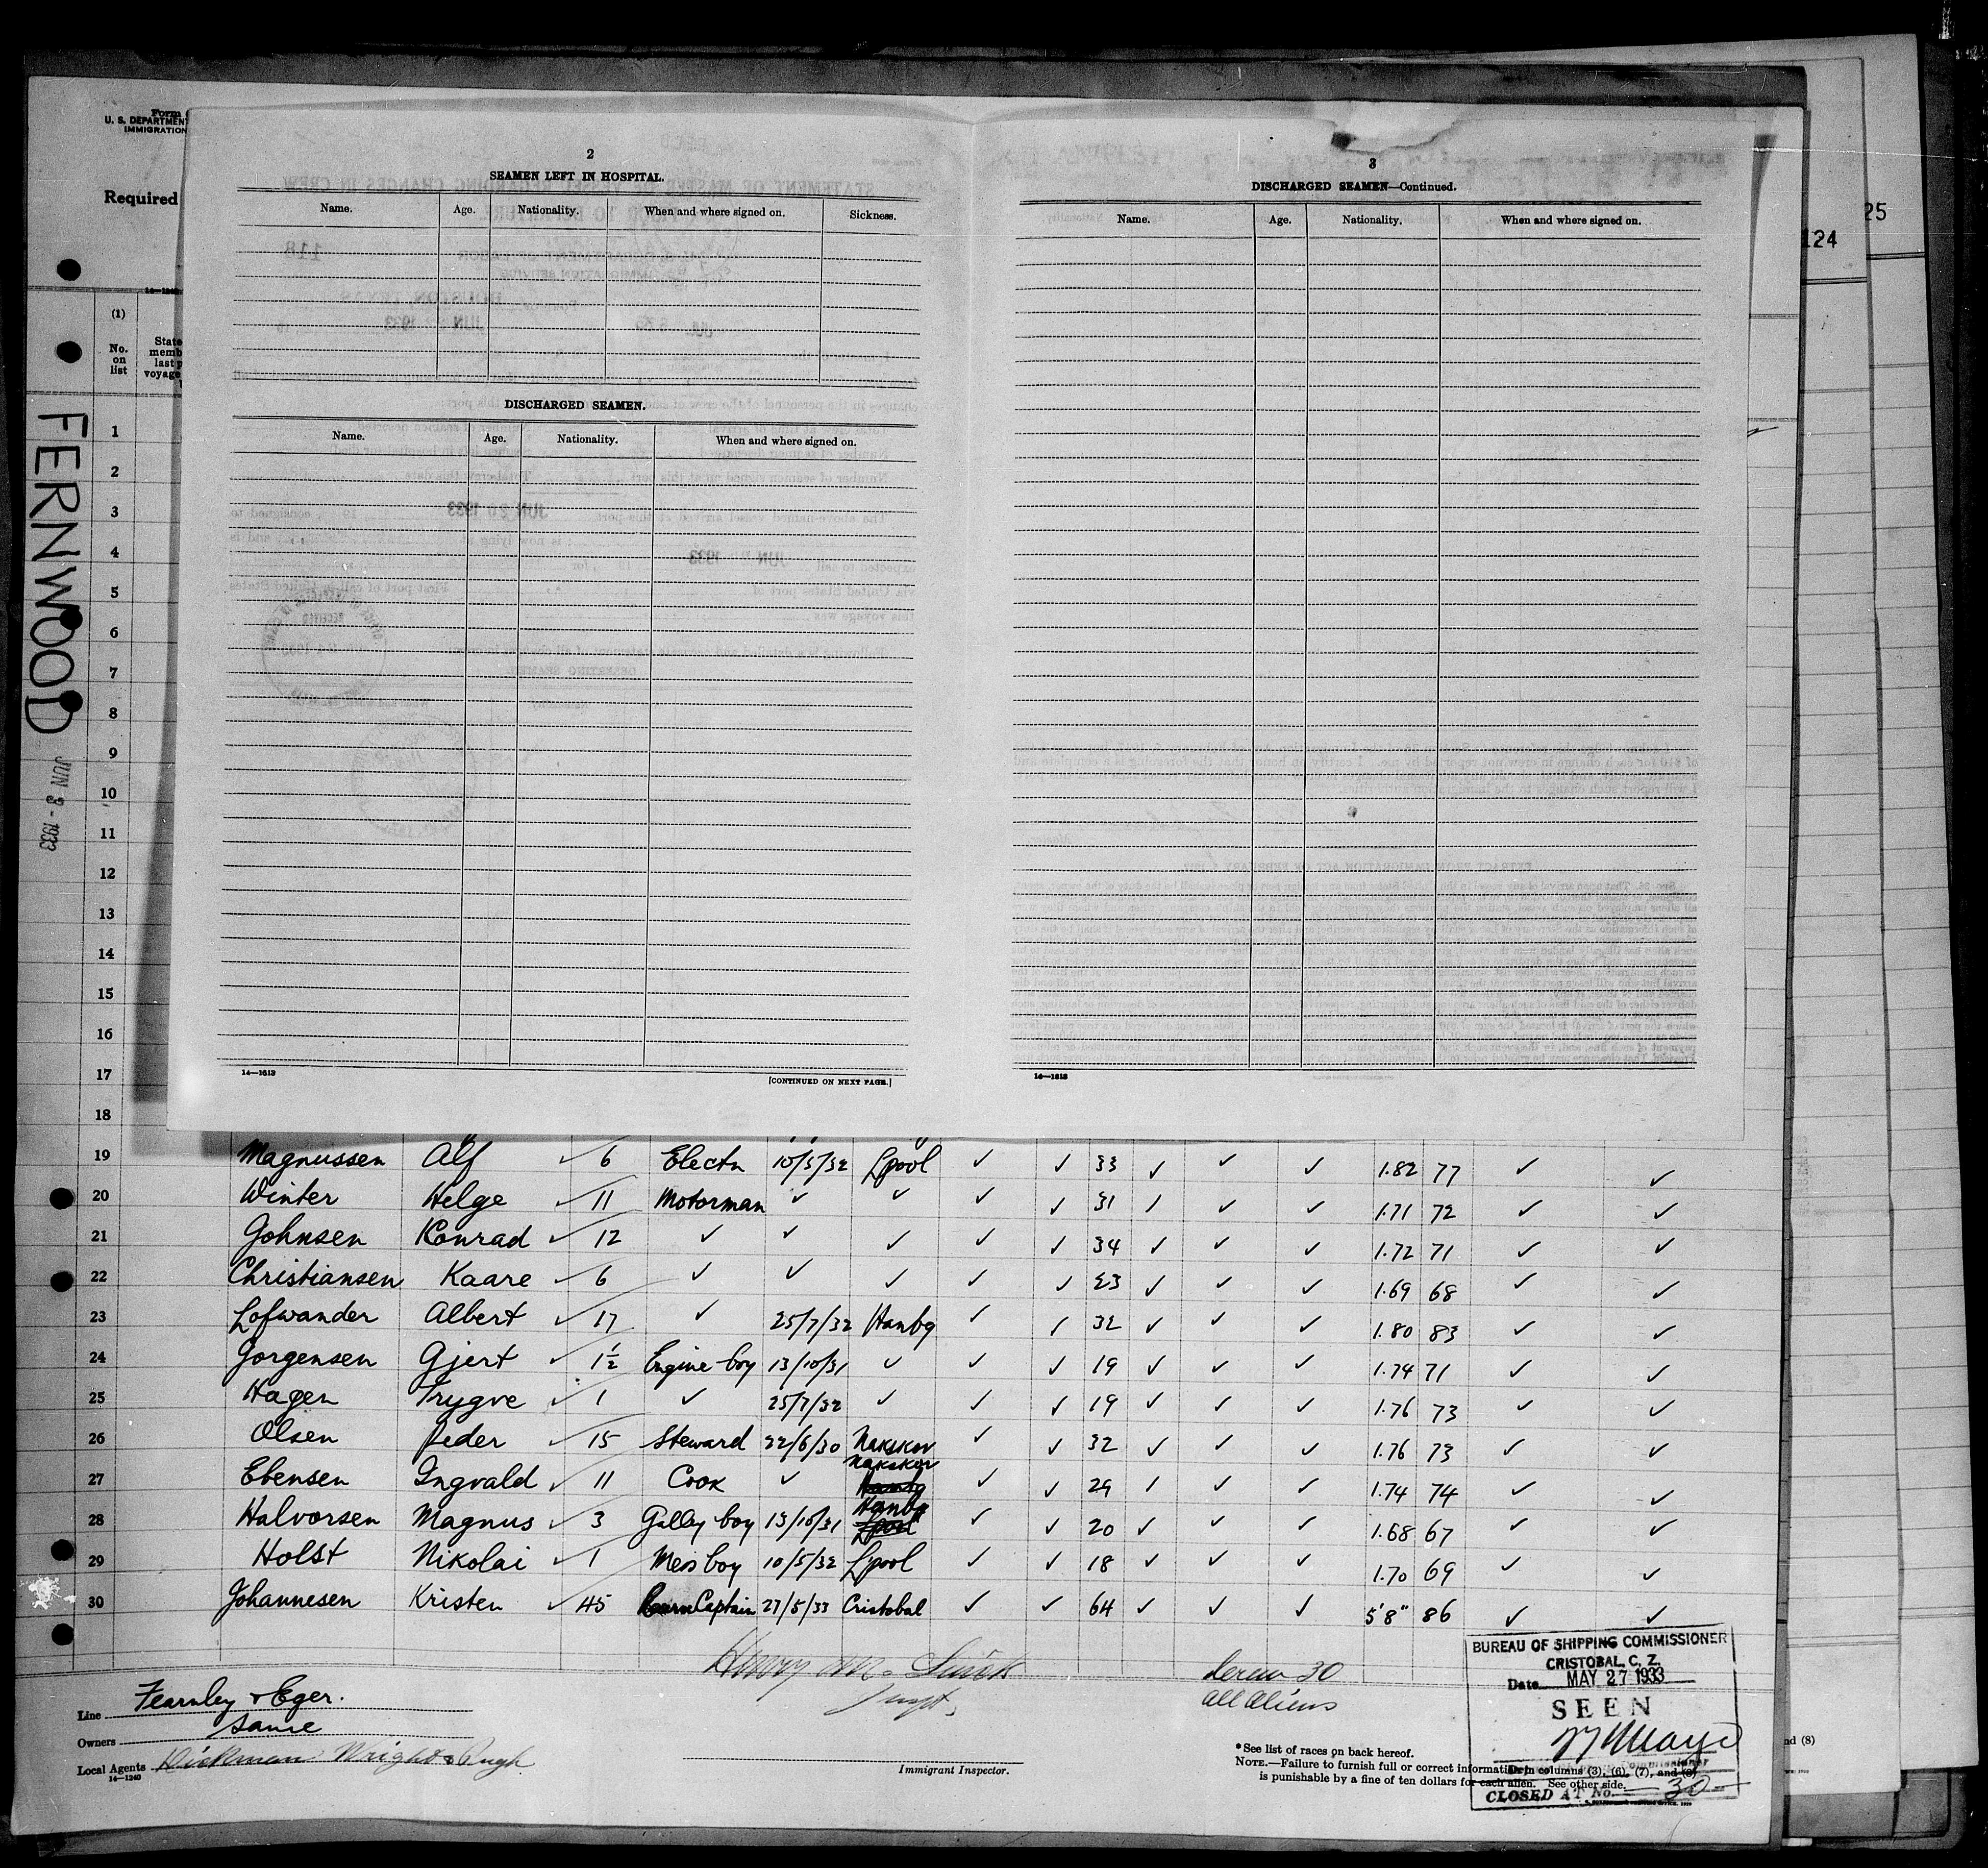 Form
U. S. DEPARTMENT
IMMIGRATION
Required
14—1240
(1)
No.
on
list
State
memb
last p
voyage
FERNWOOD
JUN 3 - 1933
25
124
2
SEAMEN LEFT IN HOSPITAL.
Name. Age. Nationality. When and where signed on. Sickness.
DISCHARGED SEAMEN.
Name. Age. Nationality. When and where signed on.
14—1613
[CONTINUED ON NEXT PAGE.]
3
DISCHARGED SEAMEN—Continued.
Name. Age. Nationality. When and where signed on.
14—1613
1
2
3
4
5
6
7
8
9
10
11
12
13
14
15
16
17
18
19 Magnussen Alf ✓ 6 Electn 10/5/32 Lpool ✓ ✓ 33 ✓ ✓ ✓ 1.82 77 ✓ ✓
20 Winter Helge ✓ 11 Motorman ✓ ✓ ✓ ✓ 31 ✓ ✓ ✓ 1.71 72 ✓ ✓
21 Johnsen Konrad ✓ 12 ✓ ✓ ✓ ✓ ✓ 34 ✓ ✓ ✓ 1.72 71 ✓ ✓
22 Christiansen Kaare ✓ 6 ✓ ✓ ✓ ✓ ✓ 23 ✓ ✓ ✓ 1.69 68 ✓ ✓
23 Lofwander Albert ✓ 17 ✓ 25/7/32 Hanbg ✓ ✓ 32 ✓ ✓ ✓ 1.80 83 ✓ ✓
24 Jorgensen Gjert ✓ 1½ Engine boy 13/10/31 ✓ ✓ ✓ 19 ✓ ✓ ✓ 1.74 71 ✓ ✓
25 Hagen Trygve ✓ 1 ✓ 25/7/32 ✓ ✓ ✓ 19 ✓ ✓ ✓ 1.76 73 ✓ ✓
26 Olsen Peder ✓ 15 Steward 22/6/30 Nakskov ✓ ✓ 32 ✓ ✓ ✓ 1.76 73 ✓ ✓
27 Ebensen Ingvald ✓ 11 Cook ✓ Nakskov Hanbg ✓ ✓ 29 ✓ ✓ ✓ 1.74 74 ✓ ✓
28 Halvorsen Magnus ✓ 3 Galley boy 13/10/31 Hanbg Lpool ✓ ✓ 20 ✓ ✓ ✓ 1.68 67 ✓ ✓
29 Holst Nikolai ✓ 1 Mess boy 10/5/32 Lpool ✓ ✓ 18 ✓ ✓ ✓ 1.70 69 ✓ ✓
30 Johannesen Kristen ✓ 45 Captain 27/5/33 Cristobal ✓ ✓ 64 ✓ ✓ ✓ 5'8" 86 ✓ ✓
Line Fearnley & Eger.
Owners Same
Local Agents Dickman Wright & Pugh
14—1240
Inspt.
Immigrant Inspector.
Crew 30
All Aliens
*See list of races on back hereof.
NOTE.—Failure to furnish full or correct information in columns (3), (6), (7), and (8)
is punishable by a fine of ten dollars for each alien. See other side.
BUREAU OF SHIPPING COMMISSIONER
CRISTOBAL, C. Z.
Date MAY 27 1933
SEEN
CLOSED AT No. 30
nd (8)